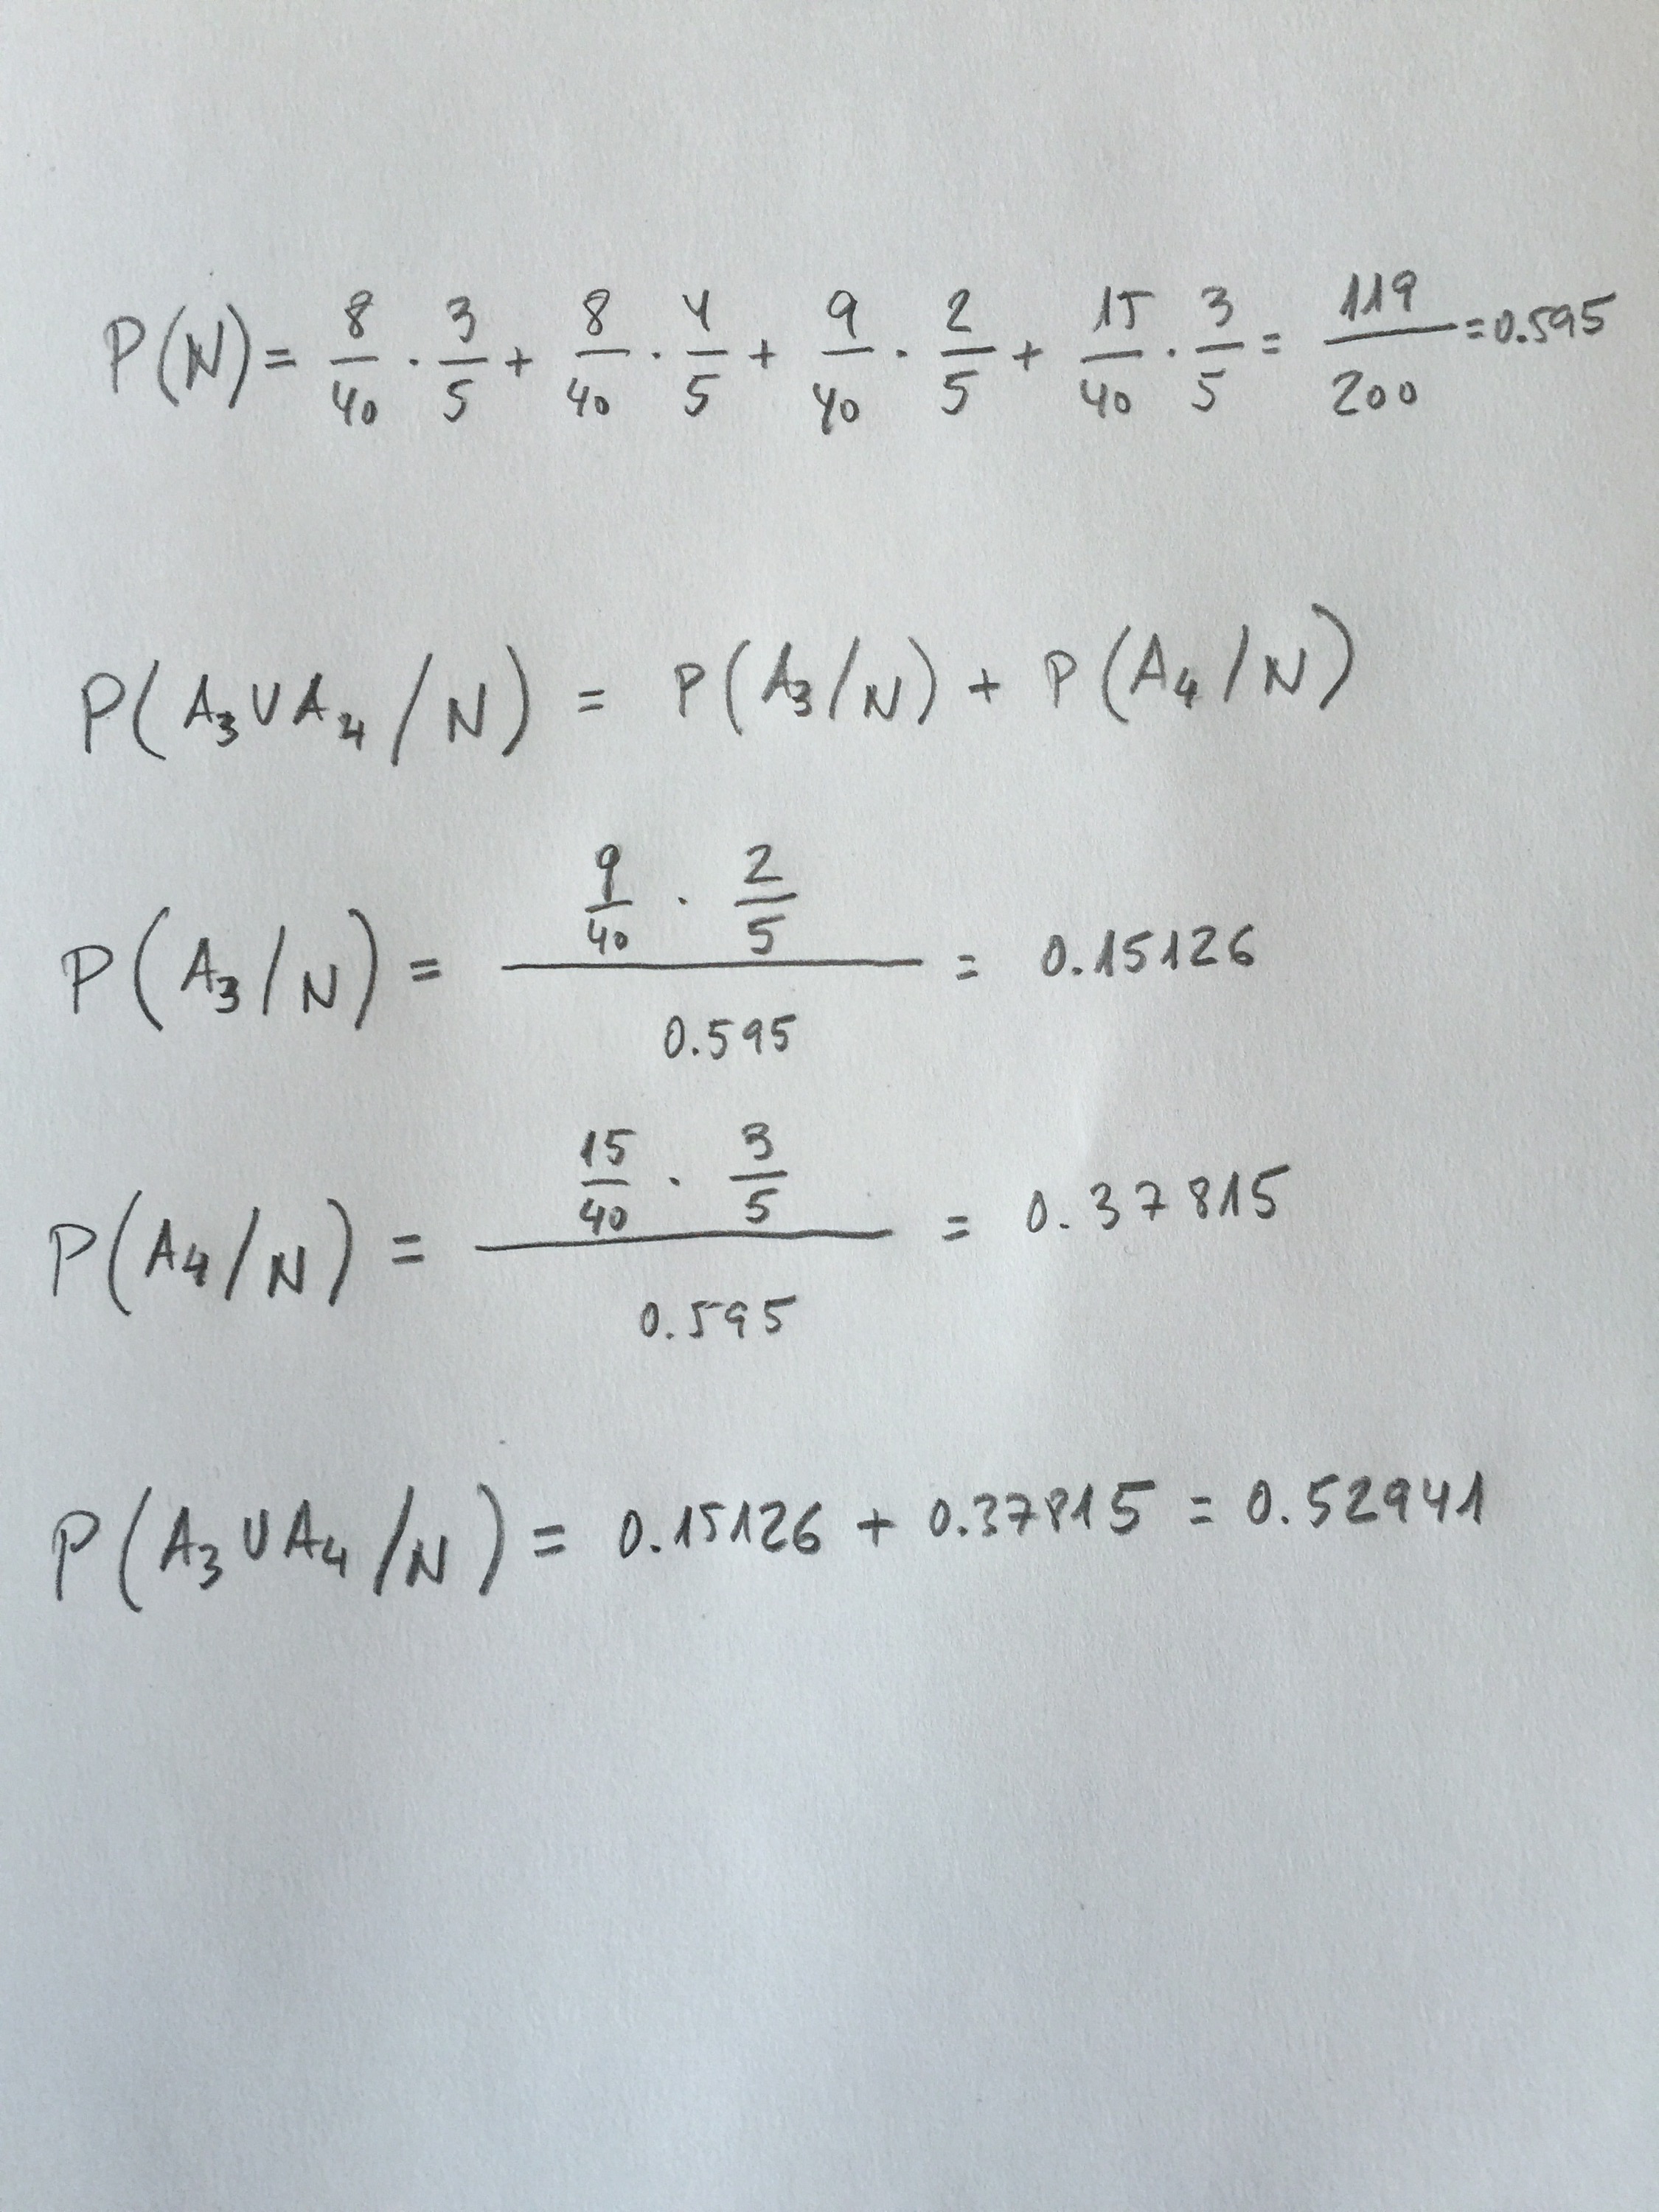 P(N) = 8/40 · 3/5 + 8/40 · 4/5 + 9/40 · 2/5 + 15/40 · 3/5 = 119/200 = 0.595
P(A₃ ∪ A₄ / N) = P(A₃/N) + P(A₄/N)
P(A₃/N) = (9/40 · 2/5) / 0.595 = 0.15126
P(A₄/N) = (15/40 · 3/5) / 0.595 = 0.37815
P(A₃ ∪ A₄ / N) = 0.15126 + 0.37815 = 0.52941